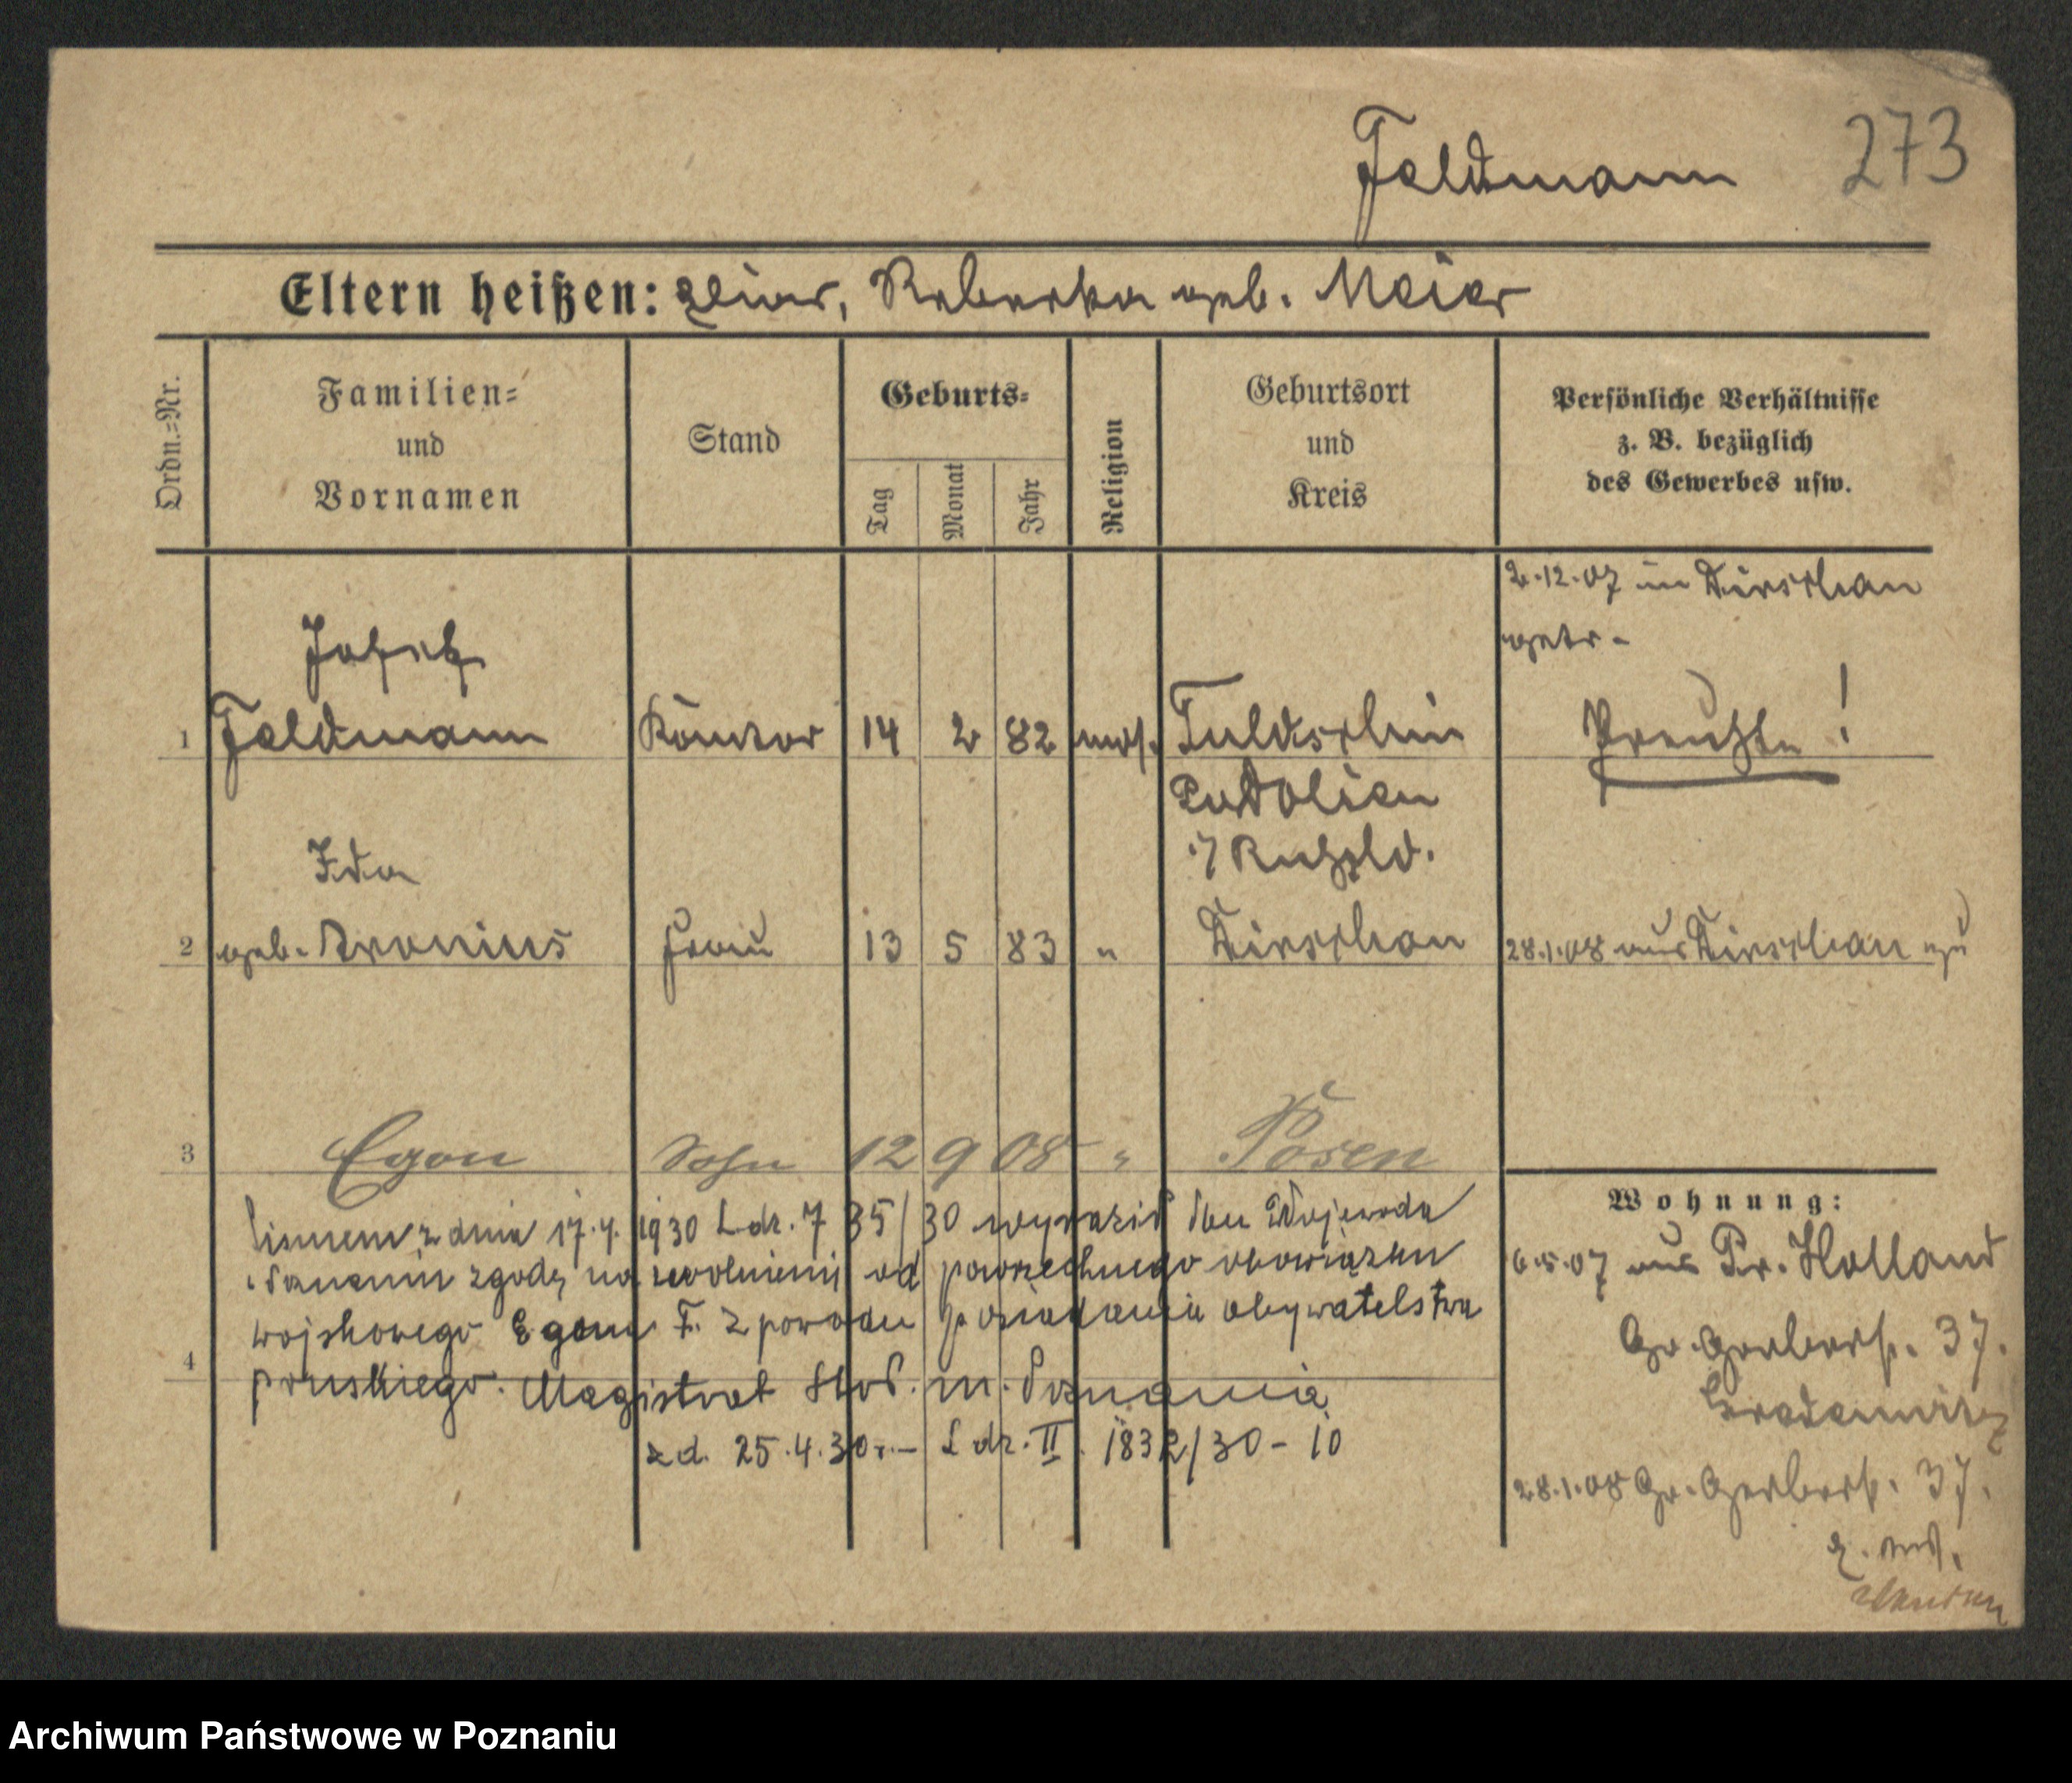 Feldmann 273
Eltern heißen: Rebecka geb. Meier
Ordn.=Nr.
Familien=
und
Vornamen
Stand
Geburts=
Tag
Monat
Jahr
Religion
Geburtsort
und
Kreis
Persönliche Verhältnisse
z. B. bezüglich
des Gewerbes usw.
2.12.07 in Dirschau
getr.
Josef
1 Feldmann Kantor 14 2 82 mos. Tuldschin
Preuße !
Podolien
i/ Rußld.
Ida
2 geb. Aronius Frau 13 5 83 " Dirschau 28.1.08 aus Dirschau zu
3 Egon Sohn 12 9 08 " Posen
z dnia 17.4. 1930 L. dz. 7 35/30 wyraził Wojewoda
zgodę na zwolnienie od powszechnego obowiązku
wojskowego Egona F. z powodu posiadania obywatelstwa
4 pruskiego. Magistrat stoł. m. Poznania
z d. 25.4.30 r. – L. dz. II. 1832/30 – 10
Wohnung:
6.5.07 aus Pr. Holland
Gr. Gerberstr. 37.
28.1.08 Gr. Gerberstr. 37.
Archiwum Państwowe w Poznaniu